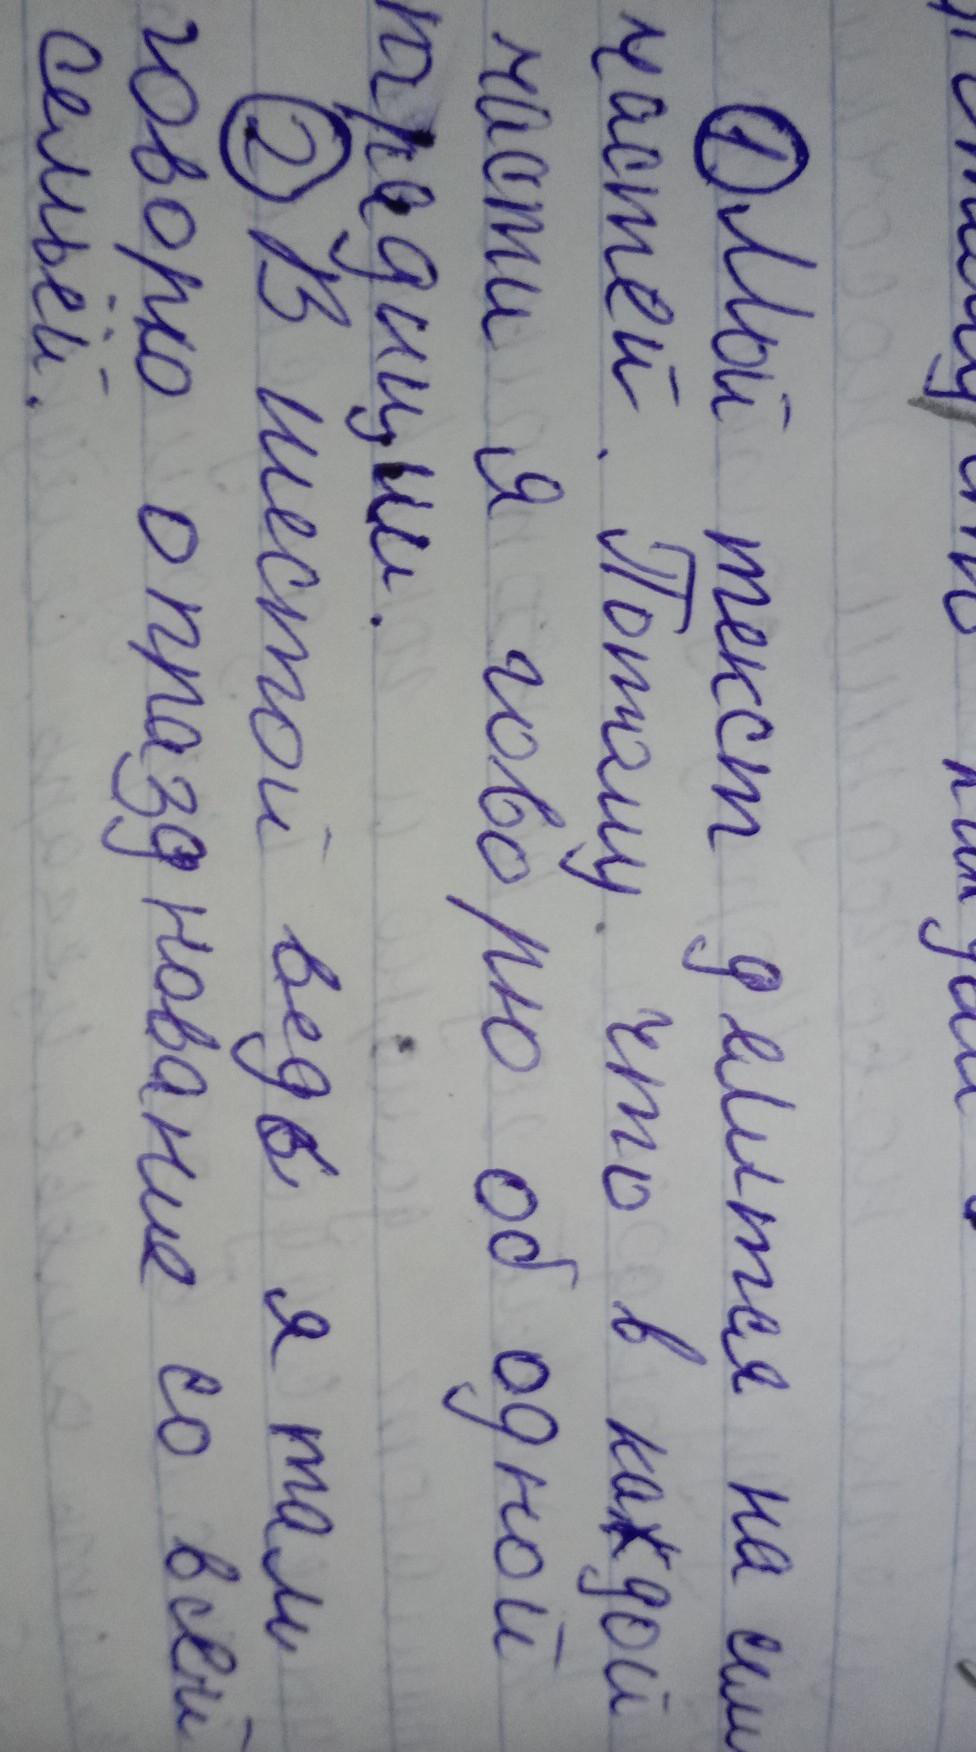 ① Мой текст делится на сим
частей. Потому что в каждой
части я говорю об одной
традиции.
② В шестой ведь я там
говорю о празднование со всей
семьёй.